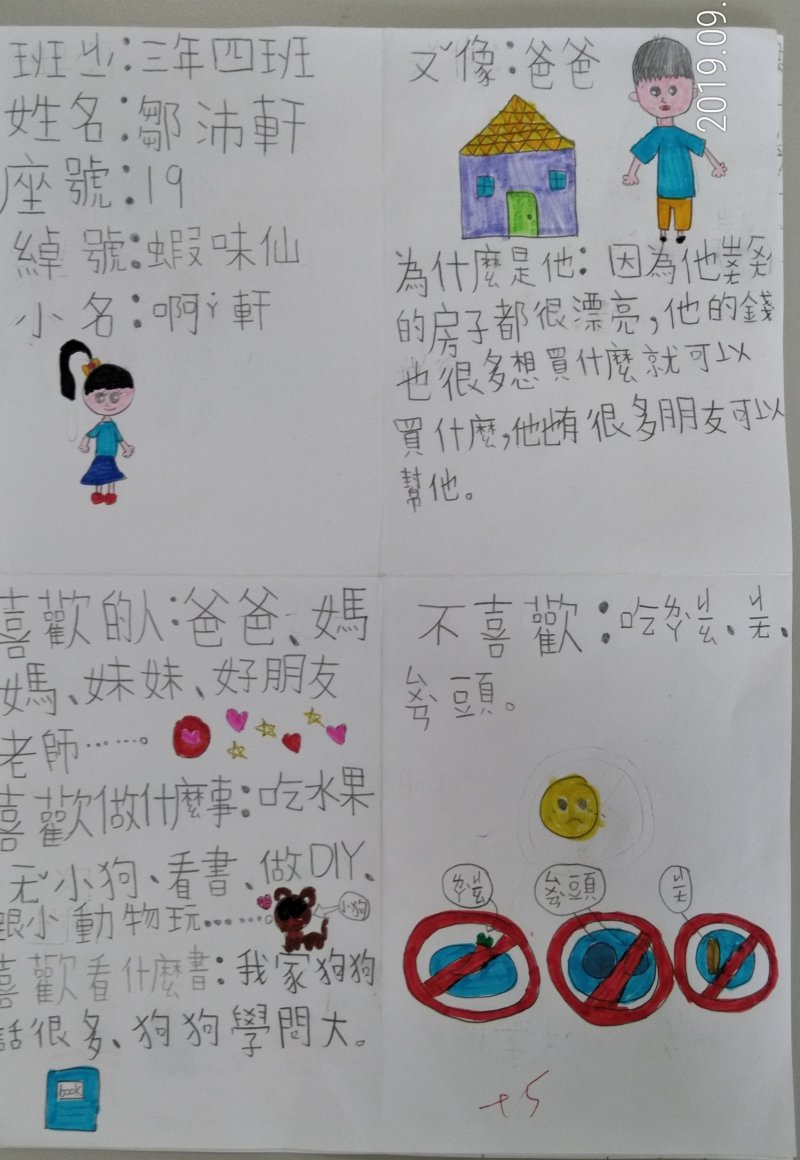 班:三年四班
姓名:鄒沛軒
座號:19
綽號:蝦味仙
小名:啊ㄚˊ軒
ㄡˇ像:爸爸
2019.09.
為什麼是他:因為他
的房子都很漂亮,他的錢
也很多想買什麼就可以
買什麼,他也有很多朋友可以
幫他。
喜歡的人:爸爸、媽
媽、妹妹、好朋友
老師……。
喜歡做什麼事:吃水果
小狗、看書、做DIY、
跟小動物玩……。
小狗
喜歡看什麼書:我家狗狗
話很多、狗狗學問大。
book
不喜歡:吃ㄌㄚˋㄐㄧㄠ、ㄐㄧㄤ、
頭。
ㄌㄚˋㄐㄧㄠ
頭
ㄐㄧㄤ
+5